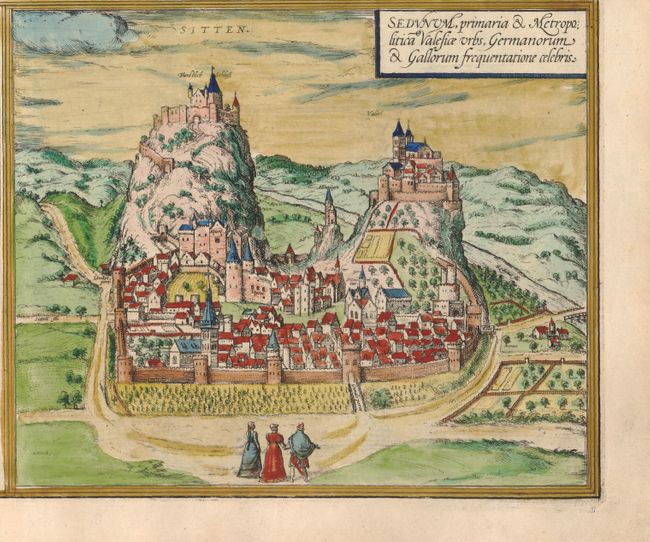 SITTEN.
SEDVNVM, primaria & Metropo:
litica Valesiæ vrbs, Germanorum
& Gallorum frequentatione celebris.